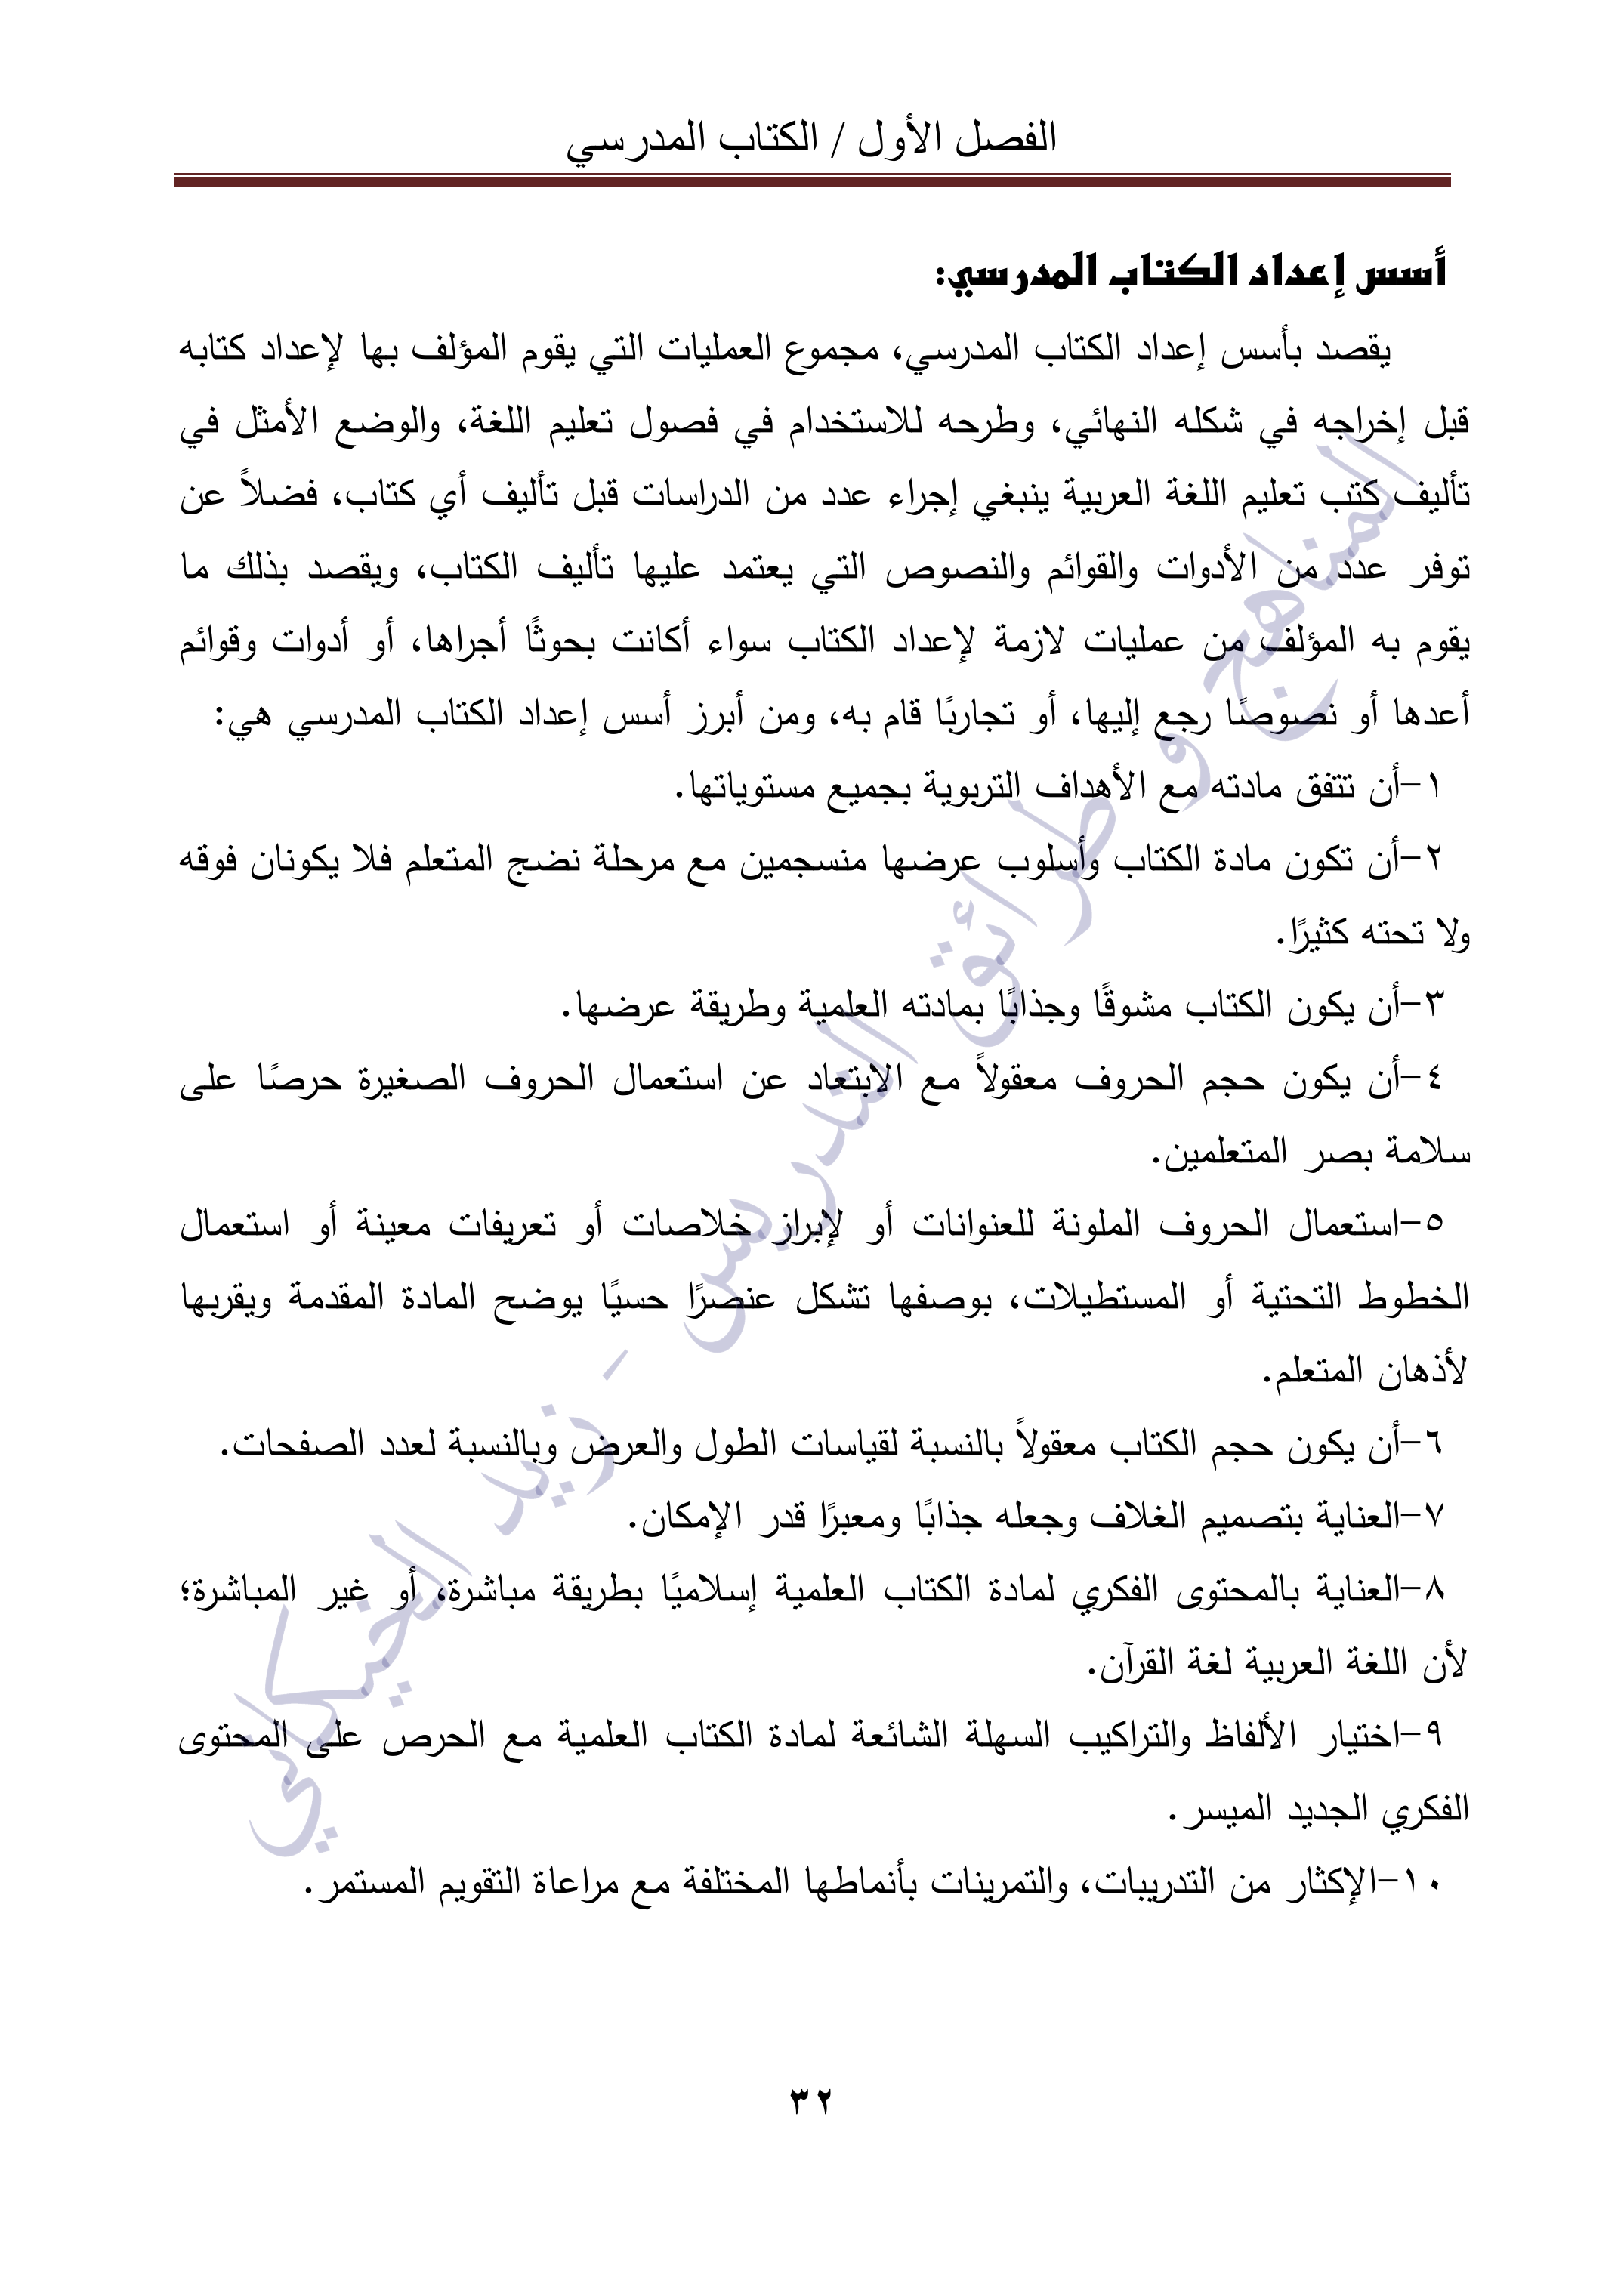 الفصل الأول / الكتاب المدرسي
أسس إعداد الكتاب المدرسي:
يقصد بأسس إعداد الكتاب المدرسي، مجموع العمليات التي يقوم المؤلف بها لإعداد كتابه
قبل إخراجه في شكله النهائي، وطرحه للاستخدام في فصول تعليم اللغة، والوضع الأمثل في
تأليف كتب تعليم اللغة العربية ينبغي إجراء عدد من الدراسات قبل تأليف أي كتاب، فضلاً عن
توفر عدد من الأدوات والقوائم والنصوص التي يعتمد عليها تأليف الكتاب، ويقصد بذلك ما
يقوم به المؤلف من عمليات لازمة لإعداد الكتاب سواء أكانت بحوثًا أجراها، أو أدوات وقوائم
أعدها أو نصوصًا رجع إليها، أو تجاربًا قام به، ومن أبرز أسس إعداد الكتاب المدرسي هي:
١-أن تتفق مادته مع الأهداف التربوية بجميع مستوياتها.
٢-أن تكون مادة الكتاب وأسلوب عرضها منسجمين مع مرحلة نضج المتعلم فلا يكونان فوقه
ولا تحته كثيرًا.
٣-أن يكون الكتاب مشوقًا وجذابًا بمادته العلمية وطريقة عرضها.
٤-أن يكون حجم الحروف معقولاً مع الابتعاد عن استعمال الحروف الصغيرة حرصًا على
سلامة بصر المتعلمين.
٥-استعمال الحروف الملونة للعنوانات أو لإبراز خلاصات أو تعريفات معينة أو استعمال
الخطوط التحتية أو المستطيلات، بوصفها تشكل عنصرًا حسيًا يوضح المادة المقدمة ويقربها
لأذهان المتعلم.
٦-أن يكون حجم الكتاب معقولاً بالنسبة لقياسات الطول والعرض وبالنسبة لعدد الصفحات.
٧-العناية بتصميم الغلاف وجعله جذابًا ومعبرًا قدر الإمكان.
٨-العناية بالمحتوى الفكري لمادة الكتاب العلمية إسلاميًا بطريقة مباشرة، أو غير المباشرة؛
لأن اللغة العربية لغة القرآن.
٩-اختيار الألفاظ والتراكيب السهلة الشائعة لمادة الكتاب العلمية مع الحرص على المحتوى
الفكري الجديد الميسر.
١٠-الإكثار من التدريبات، والتمرينات بأنماطها المختلفة مع مراعاة التقويم المستمر.
٣٢
المناهج و طرائق التدريس - زيد الخيكاني